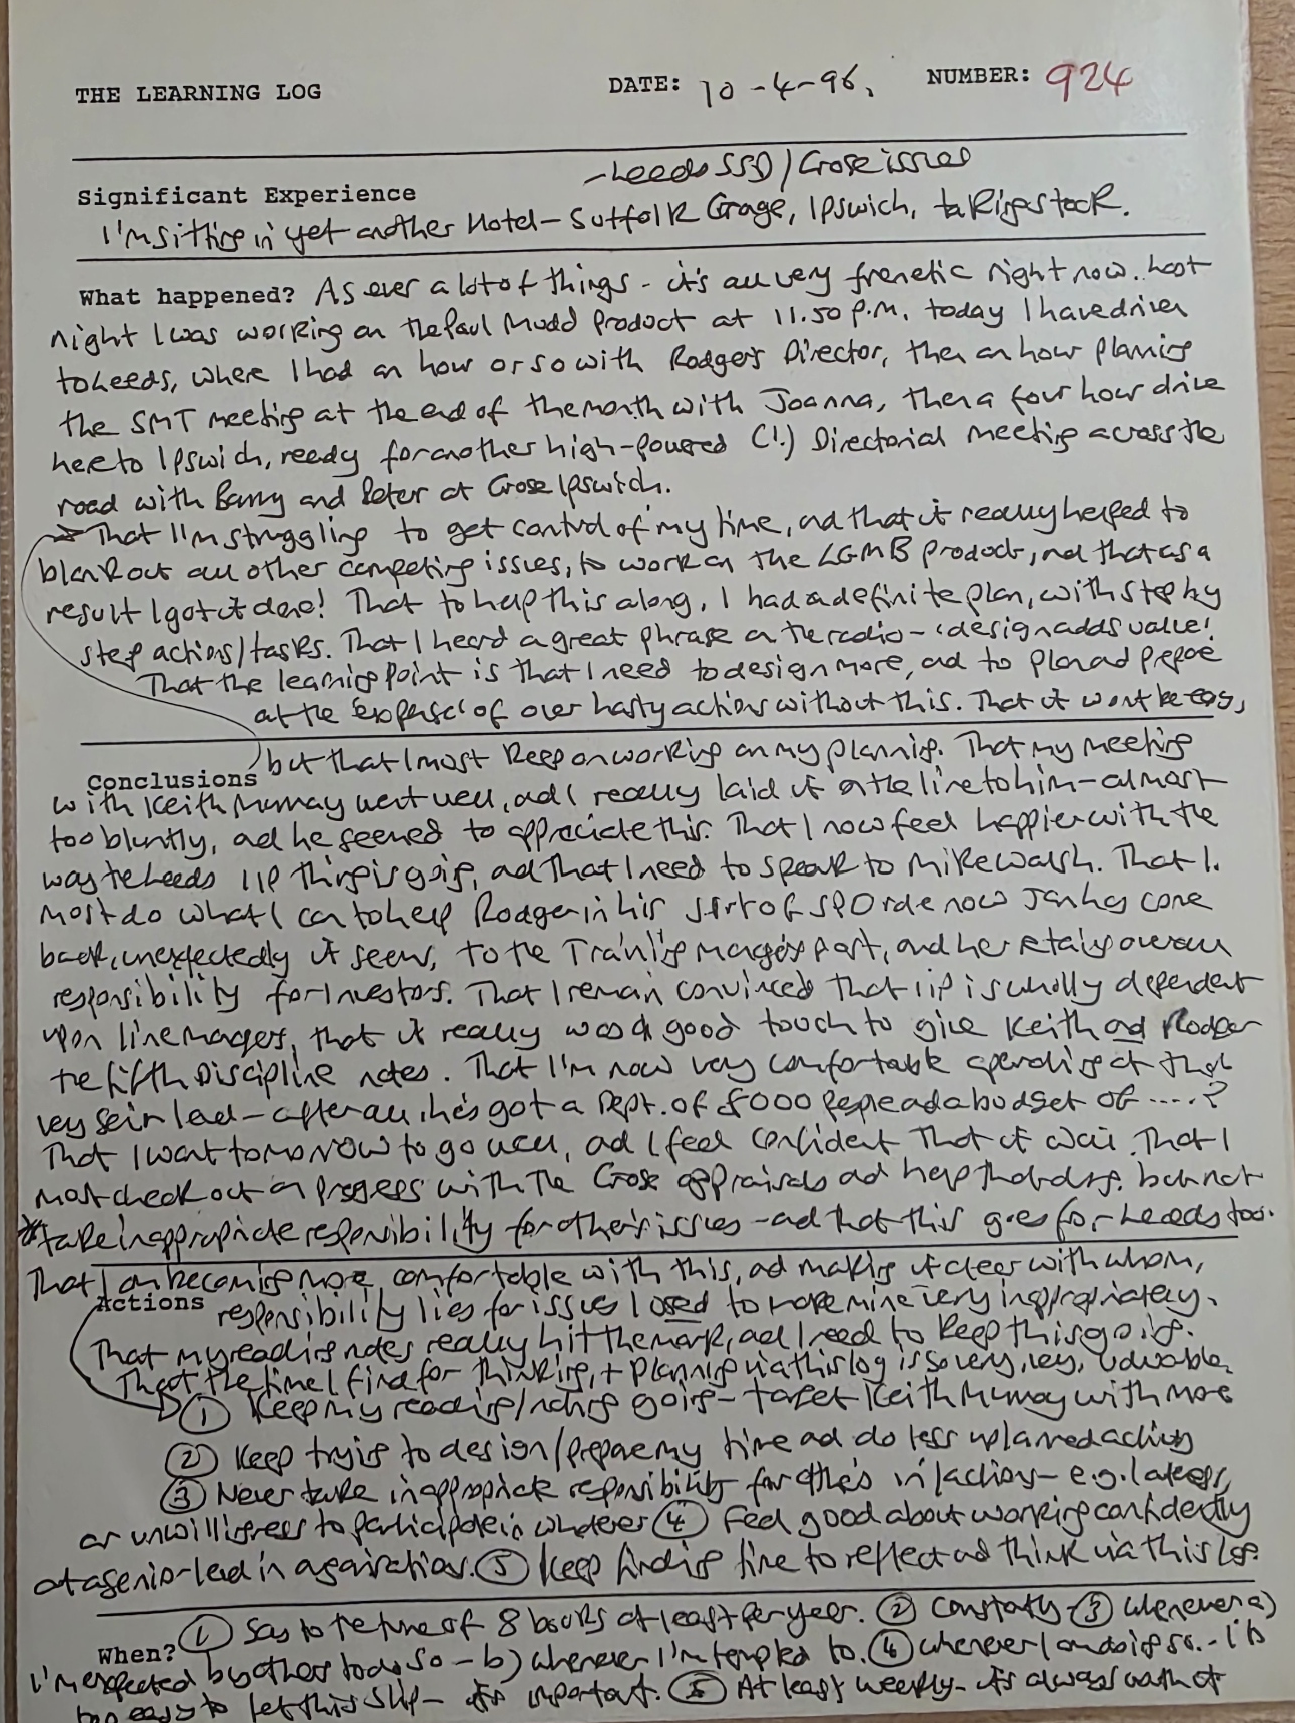 THE LEARNING LOG DATE: 10-4-96. NUMBER: 924
- Leeds SSD/Crose issues
Significant Experience
I'm sitting in yet another Hotel - Suffolk Grange, Ipswich, taking stock.
What happened? As ever a lot of things - it's all very frenetic right now. Last
night I was working on the Paul Mudd product at 11.50 p.m, today I have driven
to Leeds, where I had an hour or so with Rodger's Director, then an hour planning
the SMT meeting at the end of the month with Joanna, then a four hour drive
here to Ipswich, ready for another high-powered (!) Directorial meeting across the
road with Barry and Peter at Crose Ipswich.
→ That I'm struggling to get control of my time, and that it really helped to
blank out all other competing issues, to work on the LGMB product, and that as a
result I got it done! That to help this along, I had a definite plan, with step by
step actions/tasks. That I heard a great phrase on the radio - 'design adds value!
That the learning point is that I need to design more, and to plan and prepare
at the 'expense' of over hasty actions without this. That it wont be easy,
but that I must keep on working on my planning. That my meeting
Conclusions
with Keith Murray went well, and I really laid it on the line to him - almost
too bluntly, and he seemed to appreciate this. That I now feel happier with the
way the Leeds IIP thing is going, and that I need to speak to Mike Walsh. That I
must do what I can to help Rodger in his sort of SPO role now Jan has come
back, unexpectedly it seems, to the Training Manager's part, and he retains overall
responsibility for Investors. That I remain convinced that iip is wholly dependent
upon line managers, that it really was a good touch to give Keith and Rodger
the Fifth Discipline notes. That I'm now very comfortable operating at that
very senior level - after all, he's got a Dept. of 8000 people and a budget of ....?
That I want tomorrow to go well, and I feel confident that it will. That I
must check out on progress with the Crose appraisals and help that along, but not
*take inappropriate responsibility for other's issues - and that this goes for Leeds too.
That I am becoming more comfortable with this, and making it clear with whom,
Actions responsibility lies for issues I used to make mine very inappropriately.
That my reading notes really hit the mark, and I need to keep this going.
That the time I find for thinking, + planning via this log is so very, very, valuable.
① Keep my reading/noting going - target Keith Murray with more
② Keep trying to design/prepare my time and do less unplanned actions
③ Never take inappropriate responsibility for other's in/actions - e.g. lateness,
or unwillingness to participate in whatever ④ Feel good about working confidently
at a senior level in organisations. ⑤ Keep finding time to reflect and think via this log.
When? ① Say to the tune of 8 books at least per year. ② Constantly - ③ Whenever a)
I'm expected by others to do so - b) whenever I'm tempted to. ④ Whenever I am doing so. - it's
too easy to let this slip - it's important. ⑤ At least weekly - it's always worth it